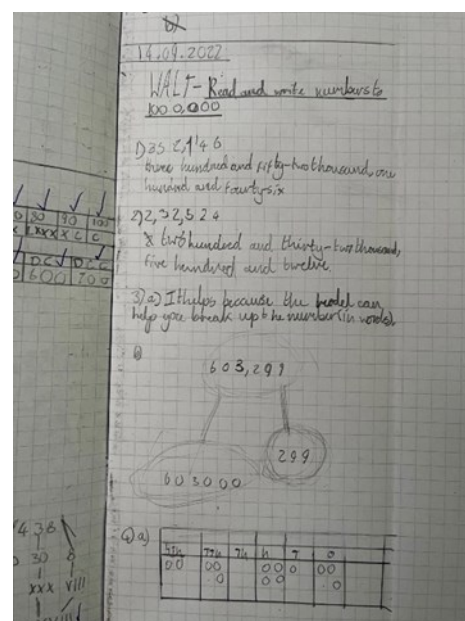 14.09.2022
WALT- Read and write numbers to
1000,000
1) 352,146
three hundred and fifty-two thousand, one
hundred and fourty-six
2) 2,32,524
two hundred and thirty-two thousand,
five hundred and twelve
3) a) It helps because the model can
help you break up the number (in words)
603,299
603000
299
4) a)
H T O
00 00 00 0 00
0 00 0
80 90 100
LXXX XC C
DC DCC
600 700
438
30 8
XXX VIII